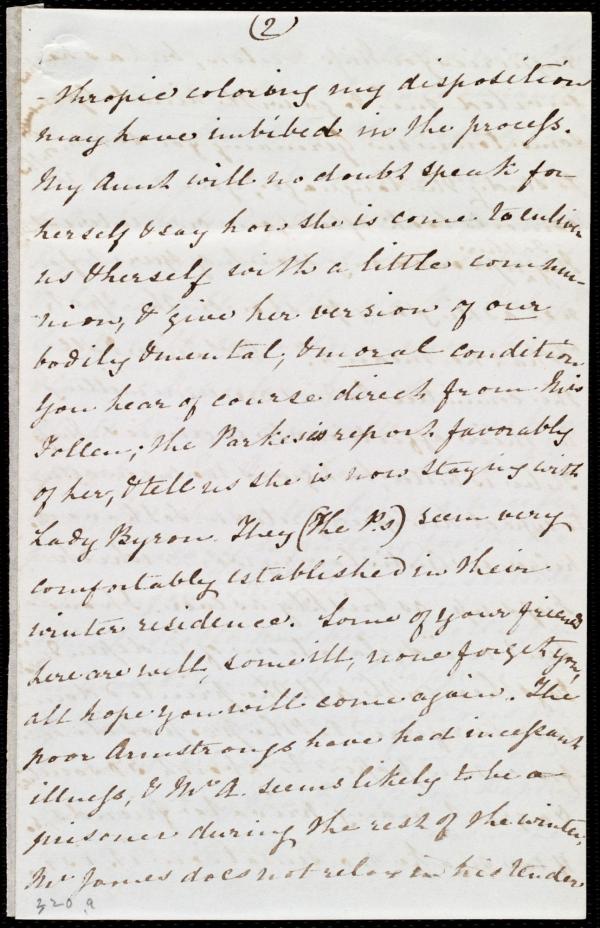 (2)
-thropic coloring my disposition
may have imbibed in the process.
My Aunt will no doubt speak for
herself & say how she is come to enliven
us & herself with a little commu-
nion, & give her version of our
bodily & mental, & moral condition
You hear of course direct from Mrs
Follen; the Parkes's report favorably
of her, & tell us she is now staying with
Lady Byron. They (The P.s) seem very
comfortably established in their
winter residence. Some of your friends
here are well, some ill, none forget you,
all hope you will come again. The
poor Armstrongs have had incessant
illness, & Mr A. seems likely to be a
prisoner during the rest of the winter,
Mr James does not relax in his tender
320.9